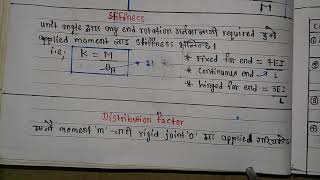 Stiffness
unit angle द्वारा any end rotation गर्नकालागी required हुने
applied moment लाइ stiffness भनिन्छ।
i.e; K = M
θA
* fixed for end = 4EI
L
* continuous end
* hinged for end = 3EI
L
Distribution Factor
मानौ moment 'm' rigid joint 'O' मा applied